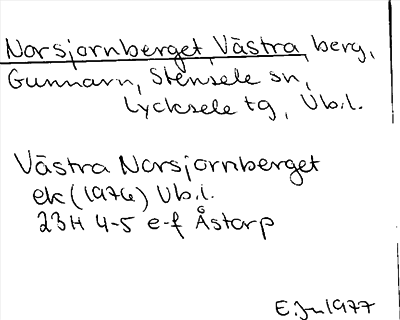 Norsjornberget, Västra, berg,
Gunnarn, Stensele sn,
Lycksele tg, Vb.l.
Västra Norsjornberget
ek (1976) Vb.l.
23H 4-5 e-f Åstorp
E.Jn 1977